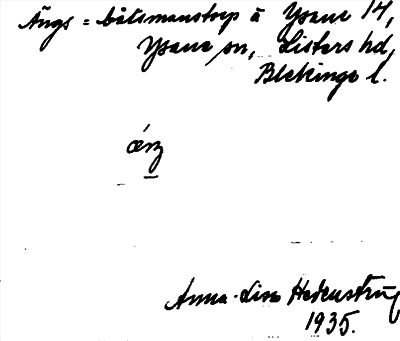 Ängs = båtsmanstorp å Ysane 14,
Ysane sn, Listers hd,
Blekinge l.
Anna-Lisa Hedenström
1935.